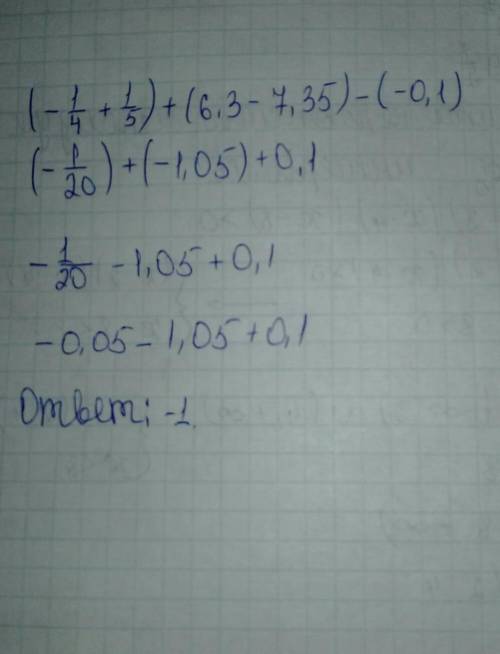 (-1/4 + 1/5) + (6,3 - 7,35) - (-0,1)
(-1/20) + (-1,05) + 0,1
-1/20 - 1,05 + 0,1
-0,05 - 1,05 + 0,1
Ответ: -1.